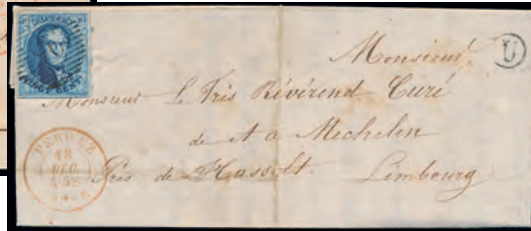 Monsieur
U
Monsieur Le Très Révérend Curé
de et a Mechelen
Près de Hasselt. Limbourg
PERWEZ
18
DEC